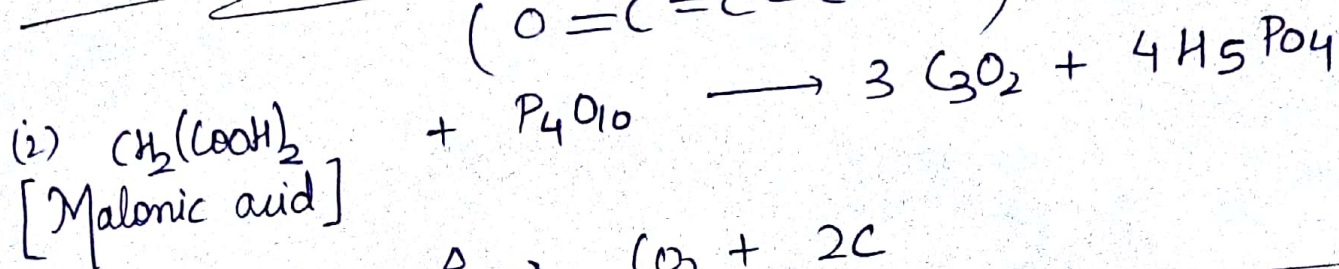 ( O = C = C
(i) CH₂(COOH)₂ + P₄O₁₀ → 3 C₃O₂ + 4 H₅PO₄
[Malonic acid]
CO₂ + 2C